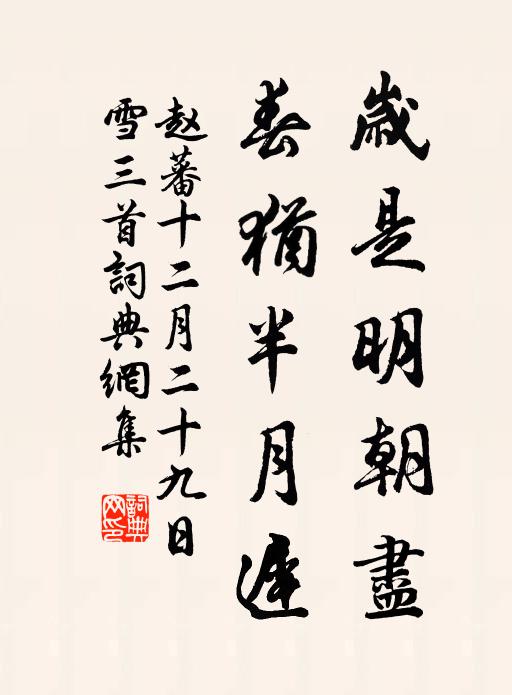 歲是明朝盡
春猶半月遲
赵蕃十二月二十九日
雪三首詞典網集
詞典
网印